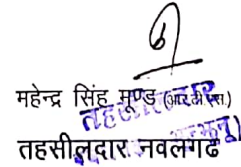 महेन्द्र सिंह मूण्ड (आर.टी.एस.)
तहसीलदार नवलगढ